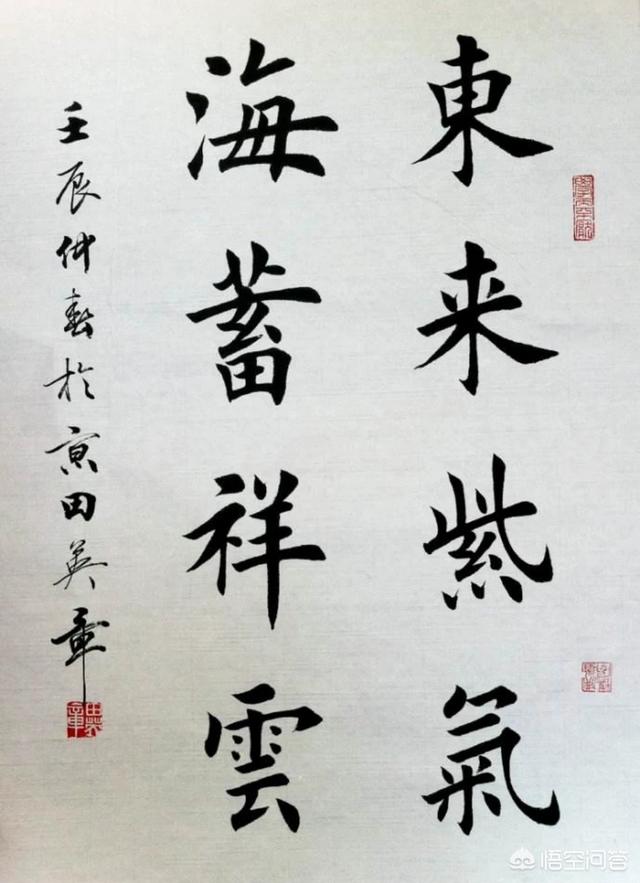 東来紫氣
海蓄祥雲
壬辰仲春於京田英章
田英章
悟空问答